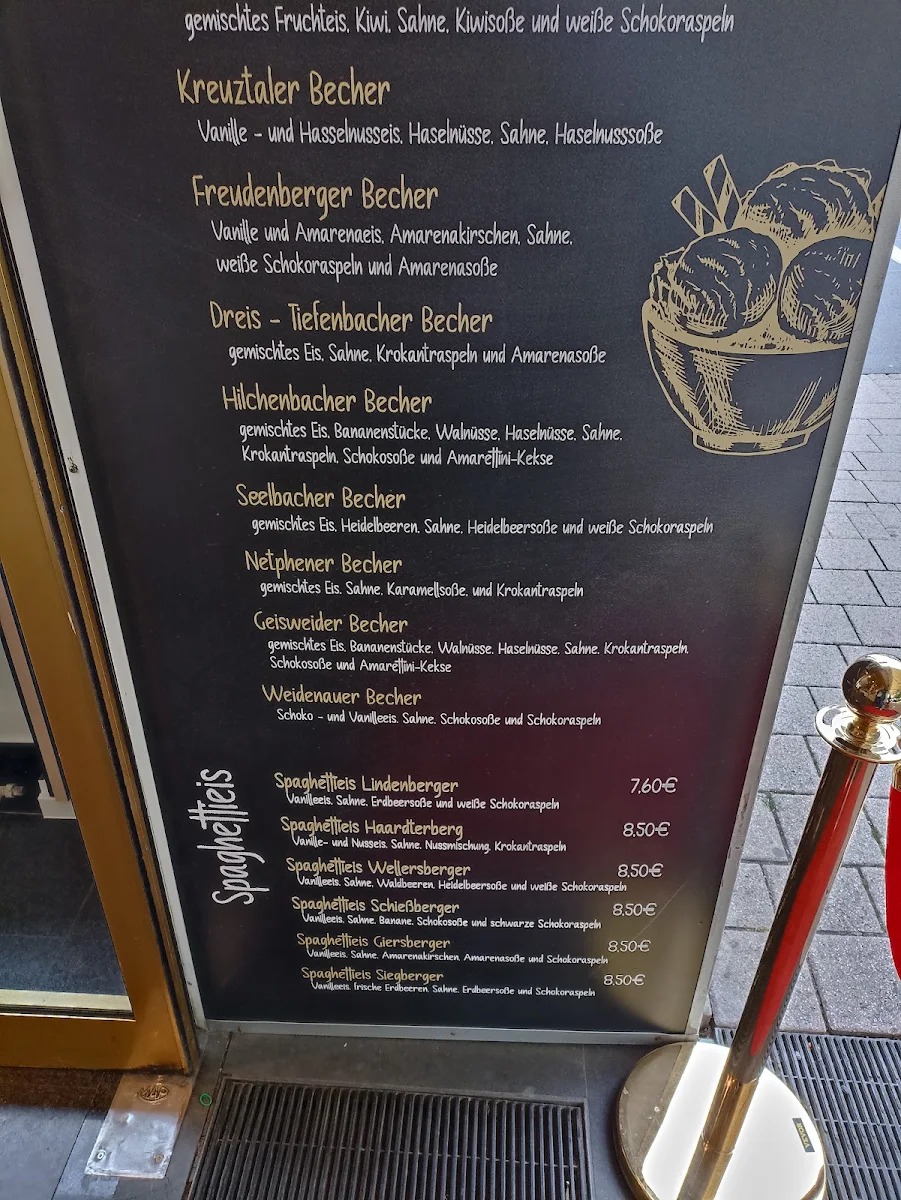 gemischtes Fruchteis, Kiwi, Sahne, Kiwisoße und weiße Schokoraspeln
Kreuztaler Becher
Vanille - und Hasselnusseis, Haselnüsse, Sahne, Haselnusssoße
Freudenberger Becher
Vanille und Amarenaeis, Amarenakirschen, Sahne,
weiße Schokoraspeln und Amarenasoße
Dreis - Tiefenbacher Becher
gemischtes Eis, Sahne, Krokantraspeln und Amarenasoße
Hilchenbacher Becher
gemischtes Eis, Bananenstücke, Walnüsse, Haselnüsse, Sahne,
Krokantraspeln, Schokosoße und Amarettini-Kekse
Seelbacher Becher
gemischtes Eis, Heidelbeeren, Sahne, Heidelbeersoße und weiße Schokoraspeln
Netphener Becher
gemischtes Eis, Sahne, Karamellsoße, und Krokantraspeln
Geisweider Becher
gemischtes Eis, Bananenstücke, Walnüsse, Haselnüsse, Sahne, Krokantraspeln,
Schokosoße und Amarettini-Kekse
Weidenauer Becher
Schoko - und Vanilleeis, Sahne, Schokosoße und Schokoraspeln
Spaghettieis
Spaghettieis Lindenberger 7,60€
Vanilleeis, Sahne, Erdbeersoße und weiße Schokoraspeln
Spaghettieis Haardterberg 8,50€
Vanille- und Nusseis, Sahne, Nussmischung, Krokantraspeln
Spaghettieis Wellersberger 8,50€
Vanilleeis, Sahne, Waldbeeren, Heidelbeersoße und weiße Schokoraspeln
Spaghettieis Schießberger 8,50€
Vanilleeis, Sahne, Banane, Schokosoße und schwarze Schokoraspeln
Spaghettieis Giersberger 8,50€
Vanilleeis, Sahne, Amarenakirschen, Amarenasoße und Schokoraspeln
Spaghettieis Siegberger 8,50€
Vanilleeis, frische Erdbeeren, Sahne, Erdbeersoße und Schokoraspeln